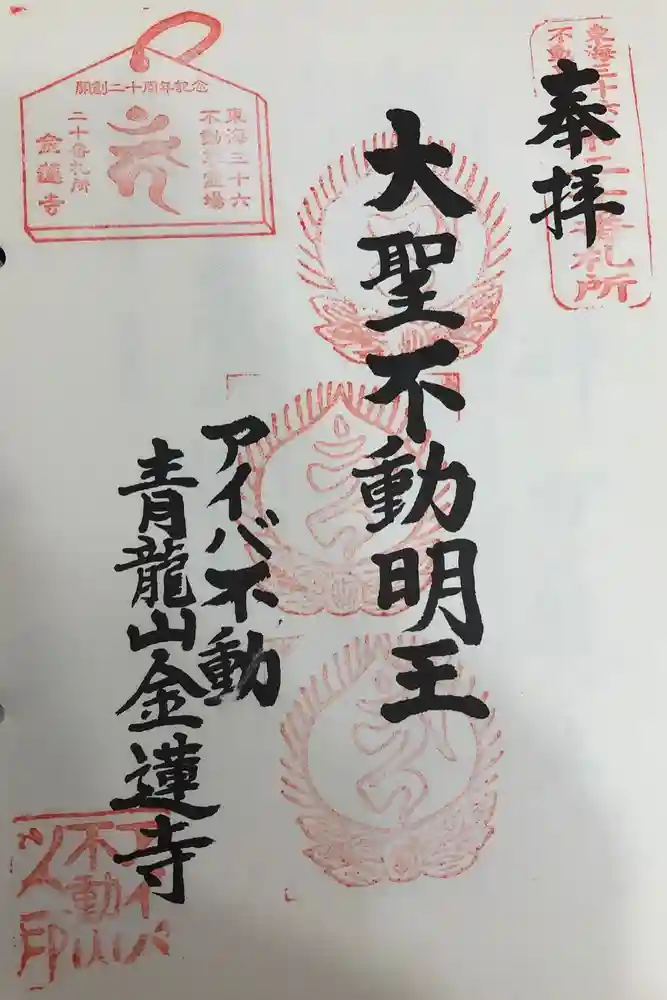 奉拝
東海三十六
不動
番札所
大聖不動明王
アイバ不動
青龍山金蓮寺
開創二十周年記念
東海三十六
不動尊霊場
二十番札所
金蓮寺
アイバ
不動
印